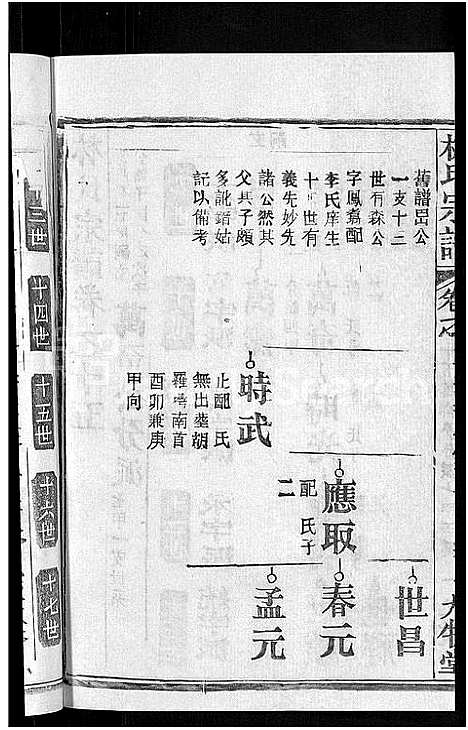 氏宗譜
舊譜嵒公
一支十三
世有森公
字鳳嘉配
李氏庠生
十四世有
義先妙先
諸公然其
父其子頗
多訛錯姑
記以備考
時武
止配 氏
無出塟胡
羅塆南首
酉卯兼庚
甲向
應取
配 氏子
二
世昌
春元
孟元
三世
十四世
十五世
十六世
十七世